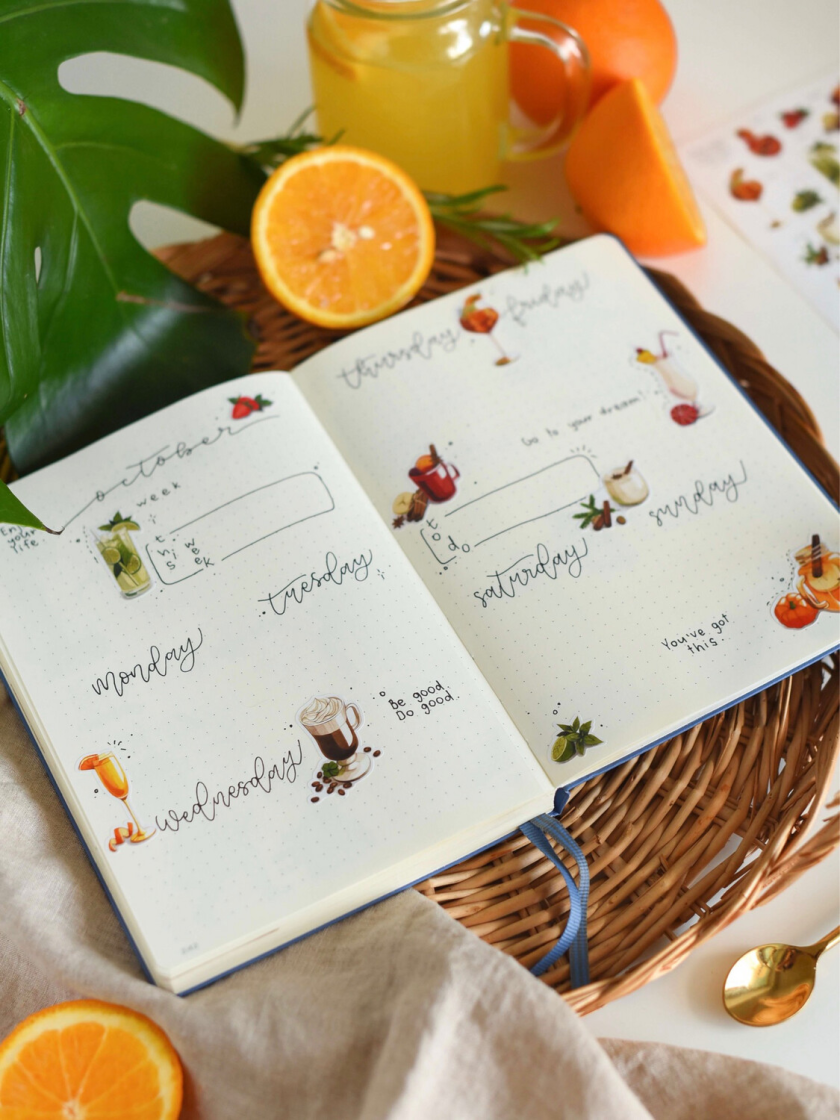 october
week
Enjoy
your
life.
this
week
tuesday
monday
Be good.
Do good.
wednesday
042
thursday
friday
Go to your dream!
to
do
sunday
saturday
You've got
this.